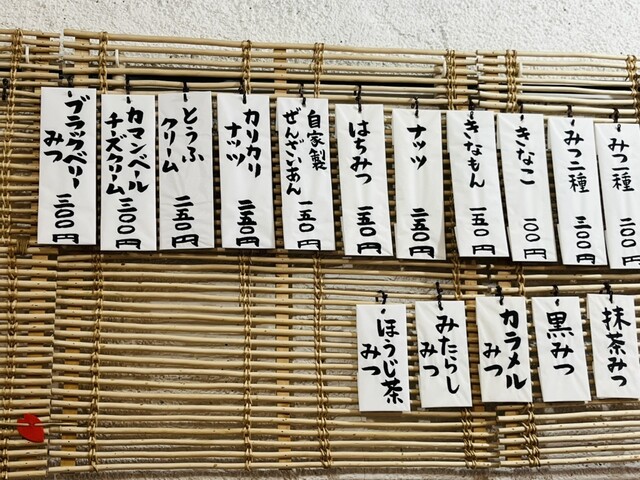 みつ二種 二〇〇円
みつ三種 三〇〇円
きなこ 一〇〇円
きなもん 一五〇円
ナッツ 二五〇円
はちみつ 一五〇円
自家製
ぜんざいあん 一五〇円
カリカリ
ナッツ 二五〇円
とうふ
クリーム 二五〇円
カマンベール
チーズクリーム 三〇〇円
ブラックベリー
みつ 三〇〇円
抹茶みつ
黒みつ
カラメル
みつ
みたらし
みつ
ほうじ茶
みつ